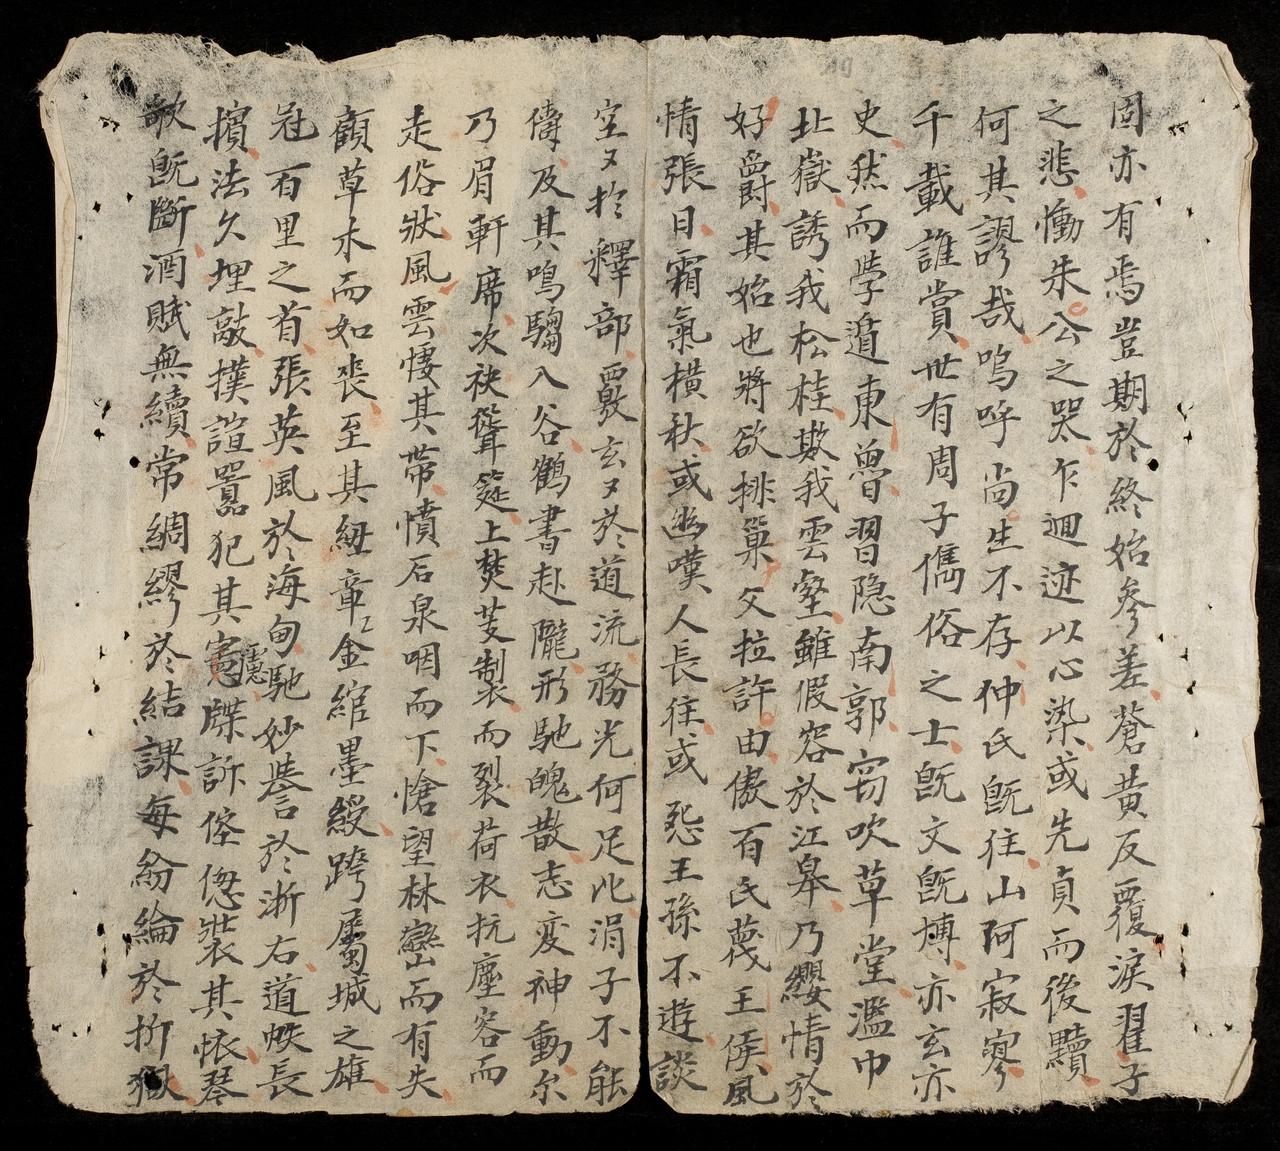 固亦有焉豈期於終始參差蒼黃反覆淚翟子
之悲慟朱公之哭乍迴迹以心染或先貞而後黷
何其謬哉嗚呼尚生不存仲氏既往山阿寂寥
千載誰賞世有周子儁俗之士既文既博亦玄亦
史然而學遁東魯習隐南郭窃吹草堂濫巾
北嶽誘我松桂欺我雲壑雖假容於江皋乃纓情於
好爵其始也將欲排巢父拉許由傲百氏蔑王侯風
情張日霜氣橫秋或幽嘆人長往或怨王孫不遊談
空〻扵釋部覈玄〻於道流務光何足比涓子不能
儔及其鳴騶入谷鶴書赴隴形馳魄散志変神動尔
乃眉軒席次袂聳筵上焚芰製而裂荷衣抗塵容而
走俗狀風雲悽其帶憤石泉咽而下愴望林巒而有失
顧草木而如喪至其紐章〻金綰墨綬跨屬城之雄
冠百里之首張英風於海甸馳妙誉於浙右道帙長
擯法久埋敲撲諠囂犯其憲慮牒訴倥偬裝其懷琴
歌既斷酒賦無續常綢繆於結課每紛綸於折獄